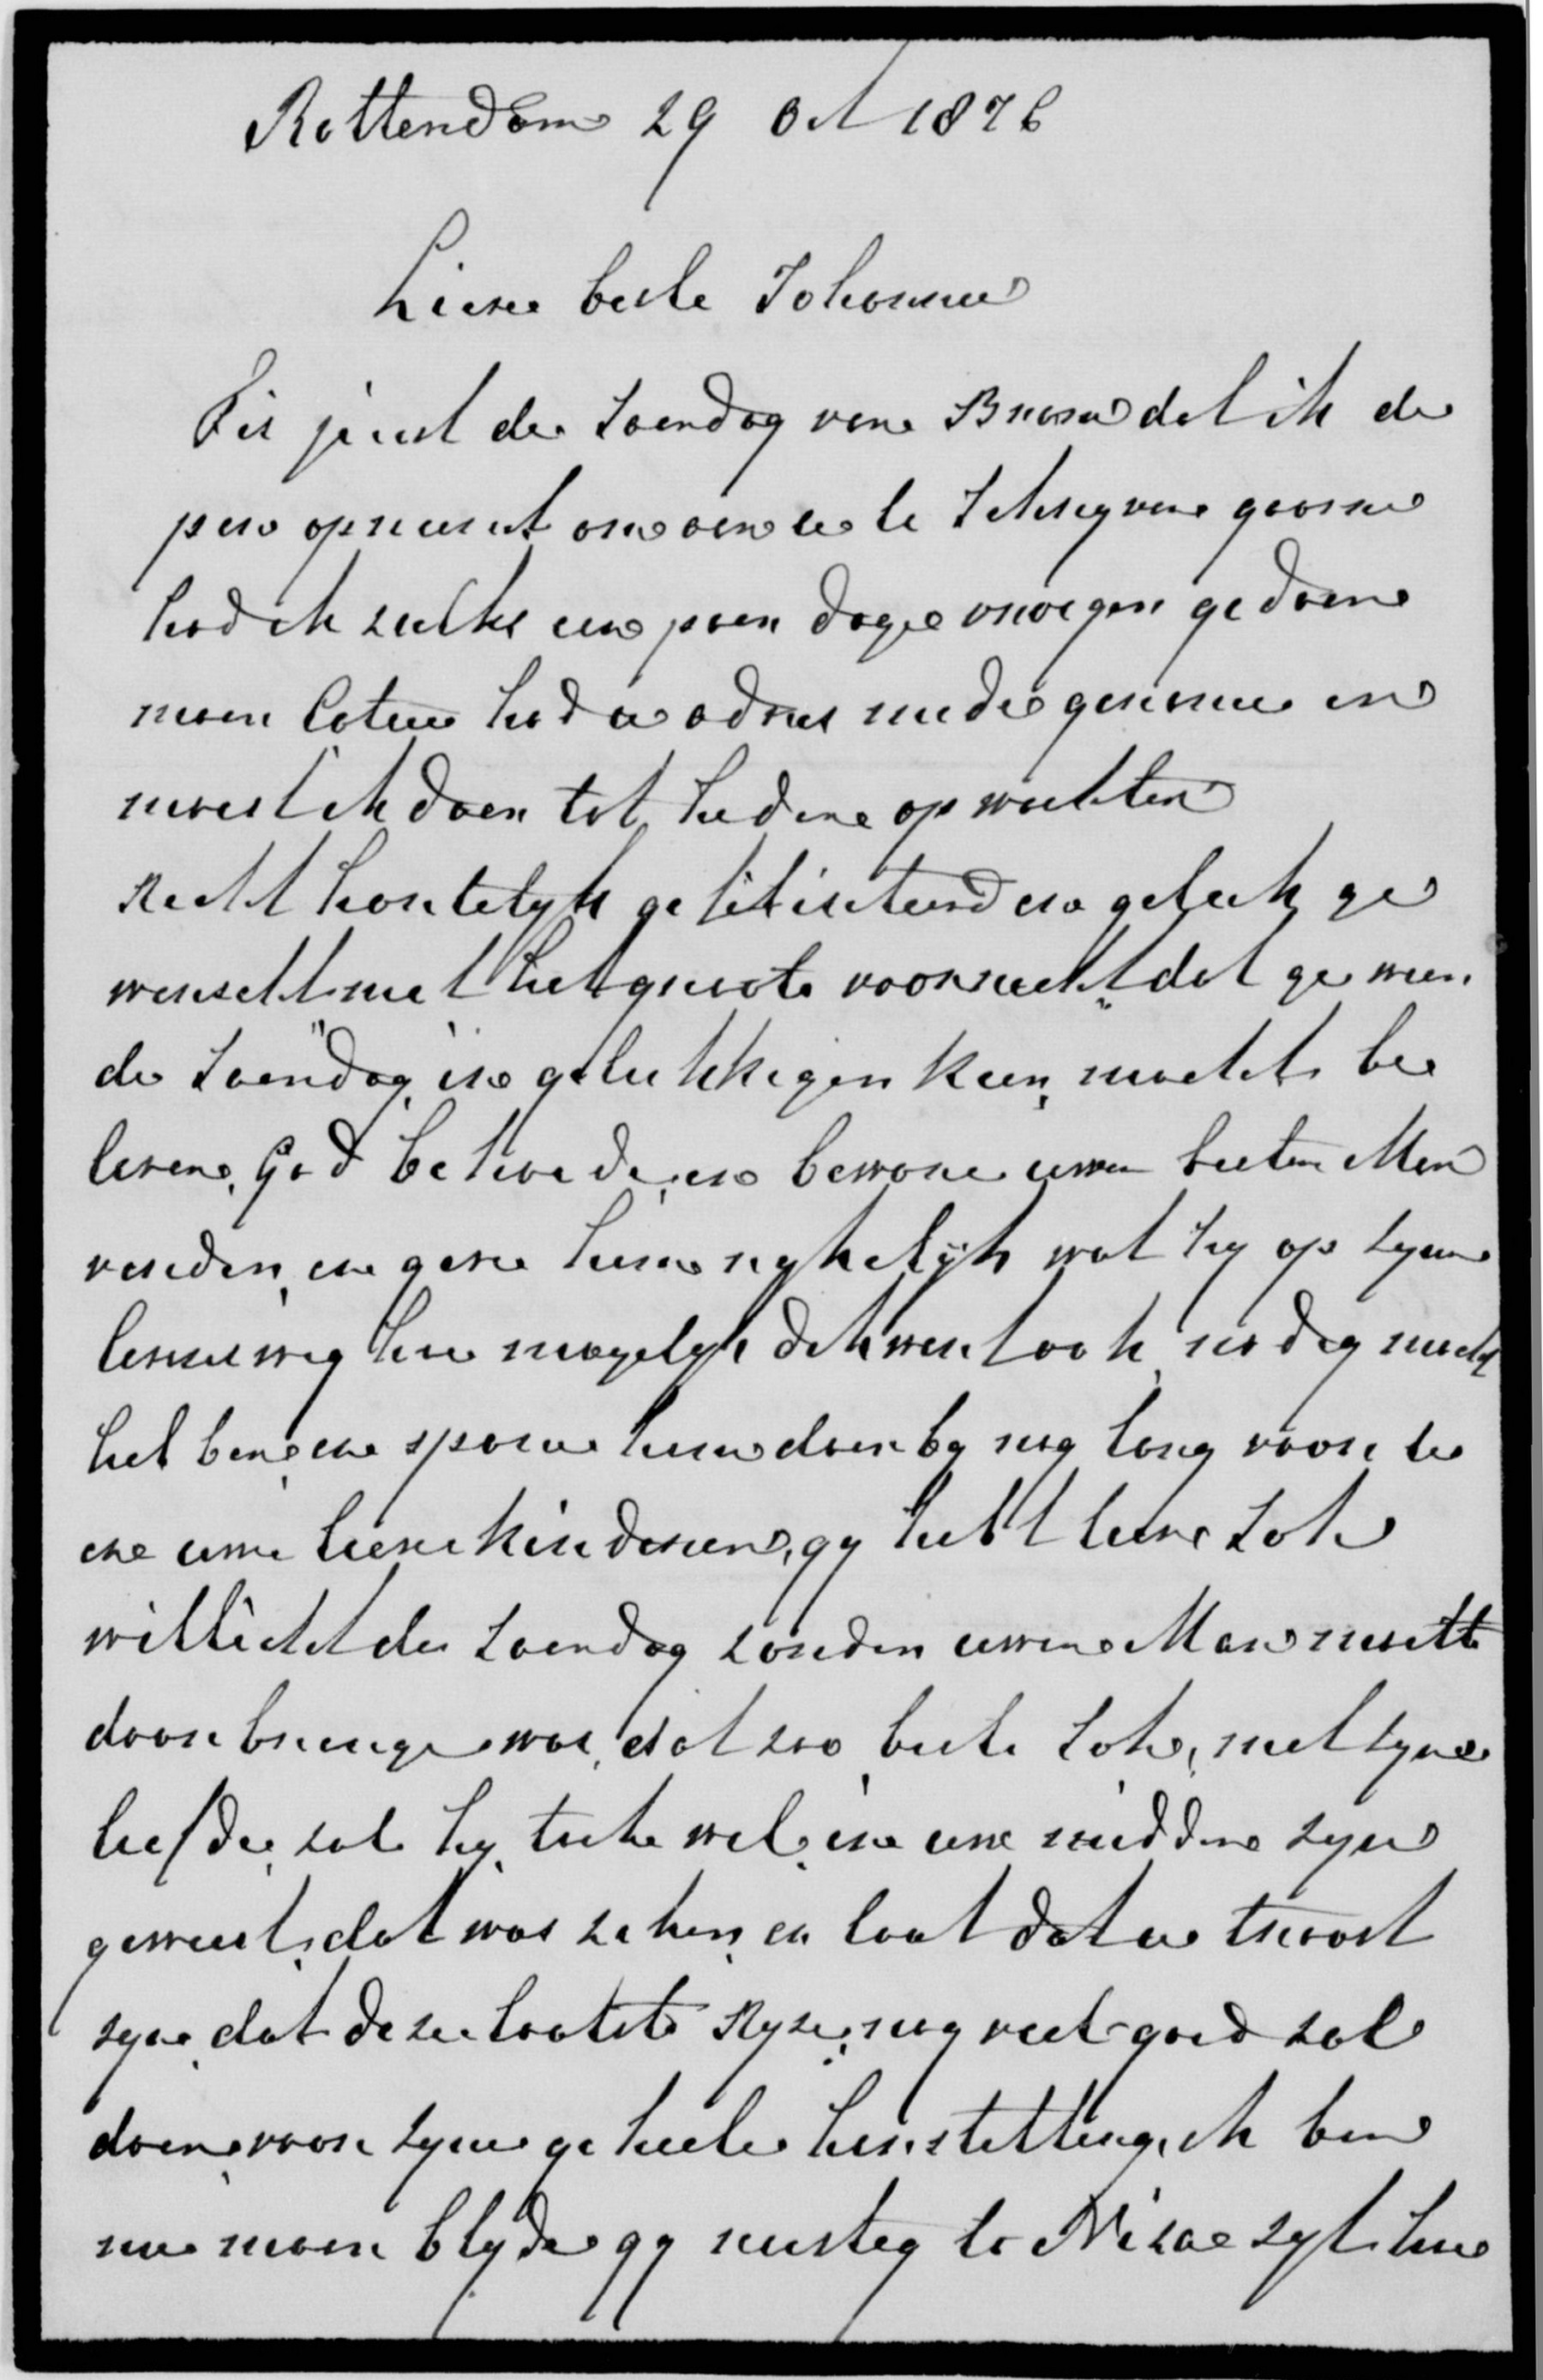 Rotterdam 29 Oct 1876
Lieve beste Johanna
't is juist de Zaterdag van Bram dat ik de
pen opneemt om aan u te schryven gaarne
had ik zulks een paar dagen vroeger gedaan
maar Cato had u adres mede genomen en
moest ik daar tot heden op wachten
Recht hartelyk gefeliciteerd en geluk ge
wenscht met het groote voorrecht dat ge weer
de dag gelukkiger keer mocht be
leven, God behoede en beware uwen besten Man
verder, en geve hem rykelyk wat hy op zyn
levensweg hem mogelyk ook nodig mocht
hebben, en spare hem daarby nog lang voor u
en uwe lieve kinderen, gy hebt lieve
wellicht de dag zonder uwen Man moeten
doorbrengen was dat zoo beste met zyne
liefde zal hy toch wel in uw midden zyn
geweest, dat was zeker, en laat dat u troost
zyn, dat deze laatste Ryze, nog veel goed zal
doen voor zyne geheele herstelling, ik ben
nu maar blyde gy rustig te zyt hoe